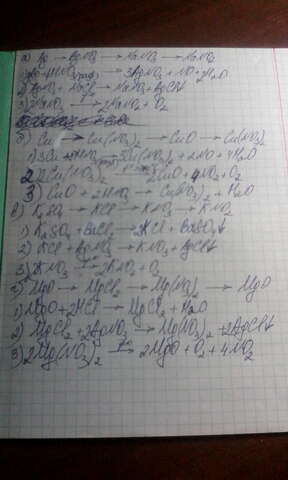 а) Ag → AgNO₃ → NaNO₃ → NaNO₂
1) 3Ag+4HNO₃(разб) → 3AgNO₃ + NO + 2H₂O
2) AgNO₃ + NaCl → NaNO₃ + AgCl↓
3) 2NaNO₃ → 2NaNO₂ + O₂
б) Cu → Cu(NO₃)₂ → CuO → Cu(NO₃)₂
1) 3Cu + 8HNO₃(разб) → 3Cu(NO₃)₂ + 2NO + 4H₂O
2) 2Cu(NO₃)₂ → 2CuO + 4NO₂ + O₂
3) CuO + 2HNO₃ → Cu(NO₃)₂ + H₂O
в) K₂SO₄ → KCl → KNO₃ → KNO₂
1) K₂SO₄ + BaCl₂ → 2KCl + BaSO₄↓
2) KCl + AgNO₃ → KNO₃ + AgCl↓
3) 2KNO₃ → 2KNO₂ + O₂
г) MgO → MgCl₂ → Mg(NO₃)₂ → MgO
1) MgO + 2HCl → MgCl₂ + H₂O
2) MgCl₂ + 2AgNO₃ → Mg(NO₃)₂ + 2AgCl↓
3) 2Mg(NO₃)₂ → 2MgO + O₂ + 4NO₂